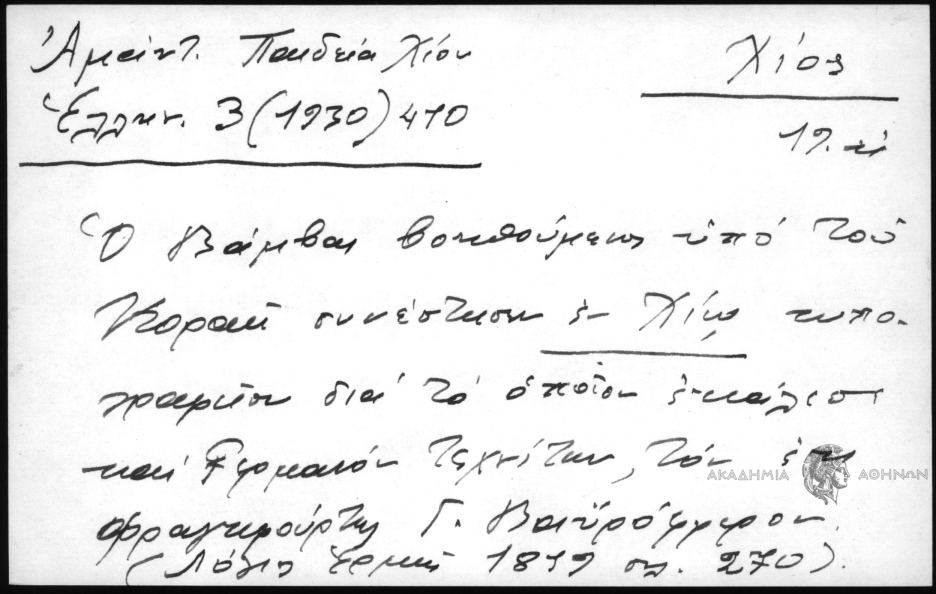 Ἀμάντ. Παιδεία Χίου
Χίος
Ἑλλην. 3 (1930) 410
19. αἰ
Ὁ Βάμβας βοηθούμενος ὑπό τοῦ
Κοραῆ συνέστησεν ἐν Χίῳ τυπο-
γραφεῖον διά τό ὁποῖον ἐκάλεσε
καί Γερμανόν τεχνίτην, τόν ἐκ
Φραγκφούρτης Γ.
(Λόγιος Ἑρμῆς 1819 σελ. 270).
ΑΚΑΔΗΜΙΑ ΑΘΗΝΩΝ